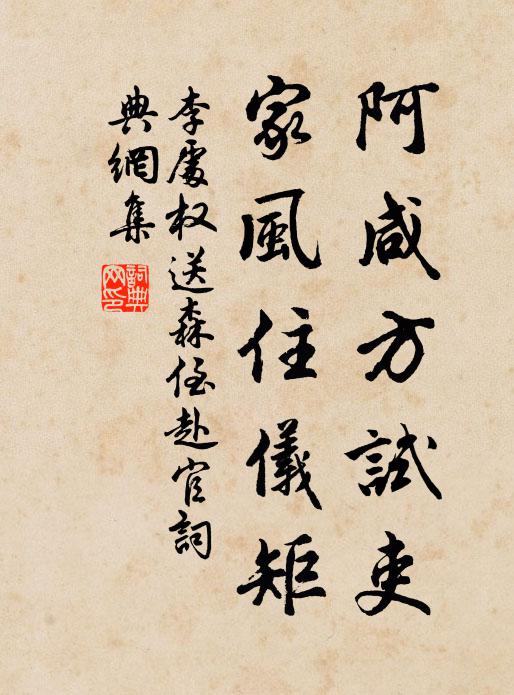 阿咸方試吏
家風住儀矩
李處权送森侄赴官詞
典網集
詞典網印